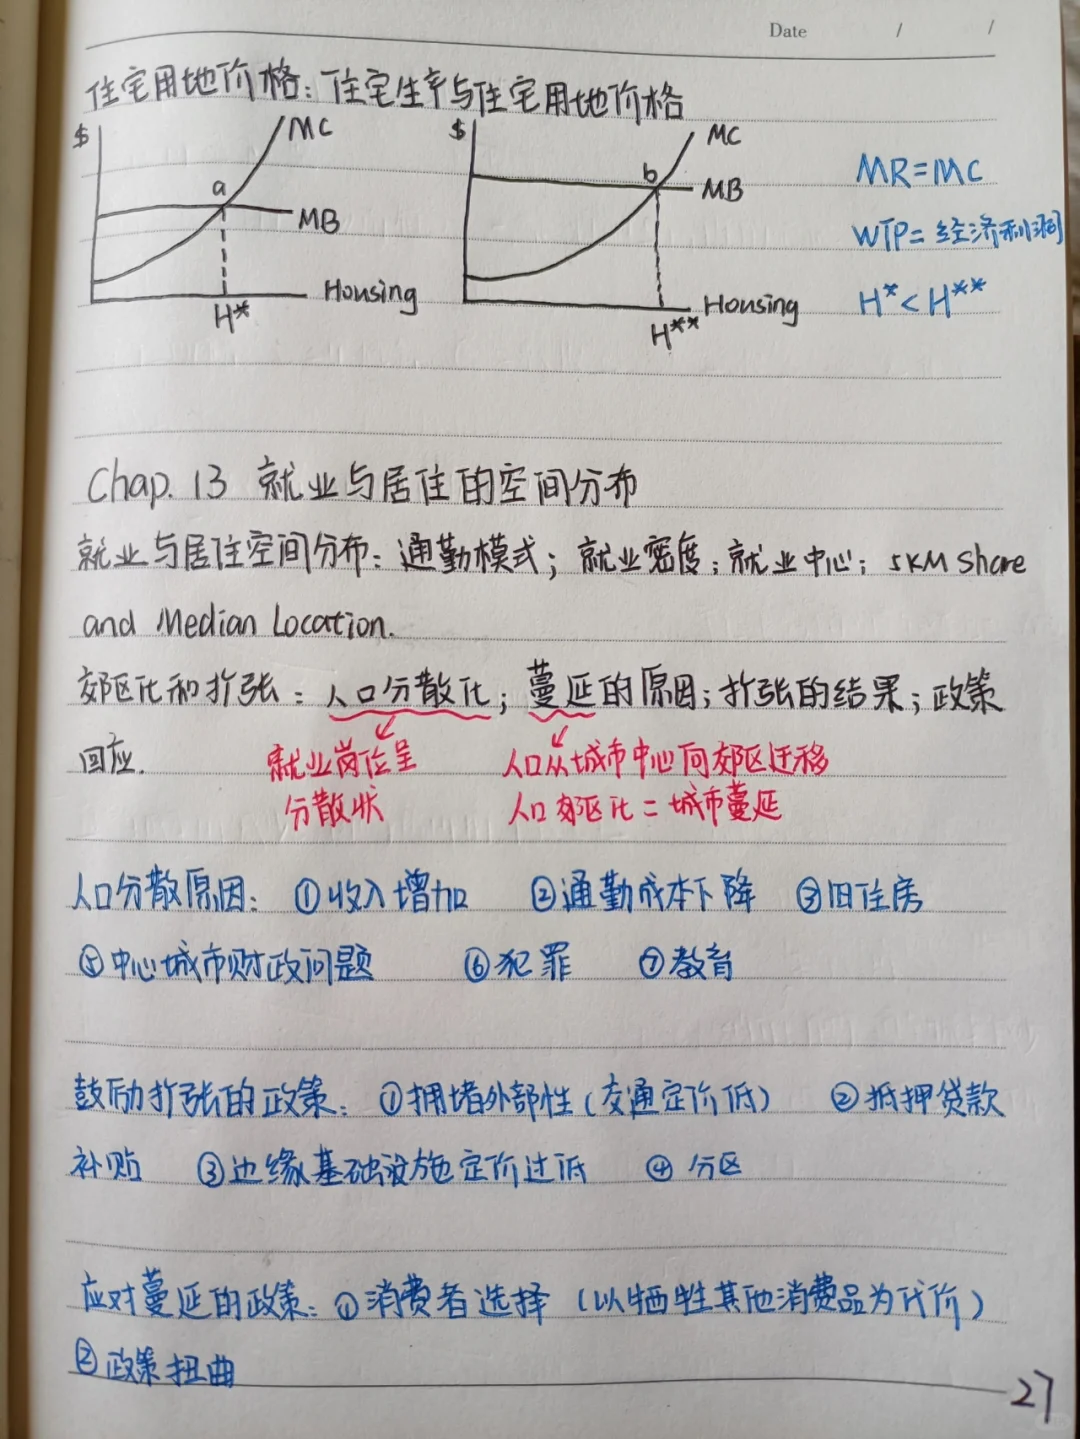 Date / /
住宅用地价格：住宅生产与住宅用地价格
$ MC
a
MB
Housing
H*
$ MC
b
MB
Housing
H**
MR=MC
WTP=经济利润
H*<H**
Chap.13 就业与居住的空间分布
就业与居住空间分布：通勤模式；就业密度；就业中心；5KM Share
and Median Location.
郊区化和扩张：人口分散化；蔓延的原因；扩张的结果；政策
回应.
就业岗位呈
分散状
人口从城市中心向郊区迁移
人口郊区化=城市蔓延
人口分散原因：①收入增加 ②通勤成本下降 ③旧住房
⑤中心城市财政问题 ⑥犯罪 ⑦教育
鼓励扩张的政策：①拥堵外部性（交通定价低） ②抵押贷款
补贴 ③边缘基础设施定价过低 ④分区
应对蔓延的政策：①消费者选择（以牺牲其他消费品为代价）
②政策扭曲
27